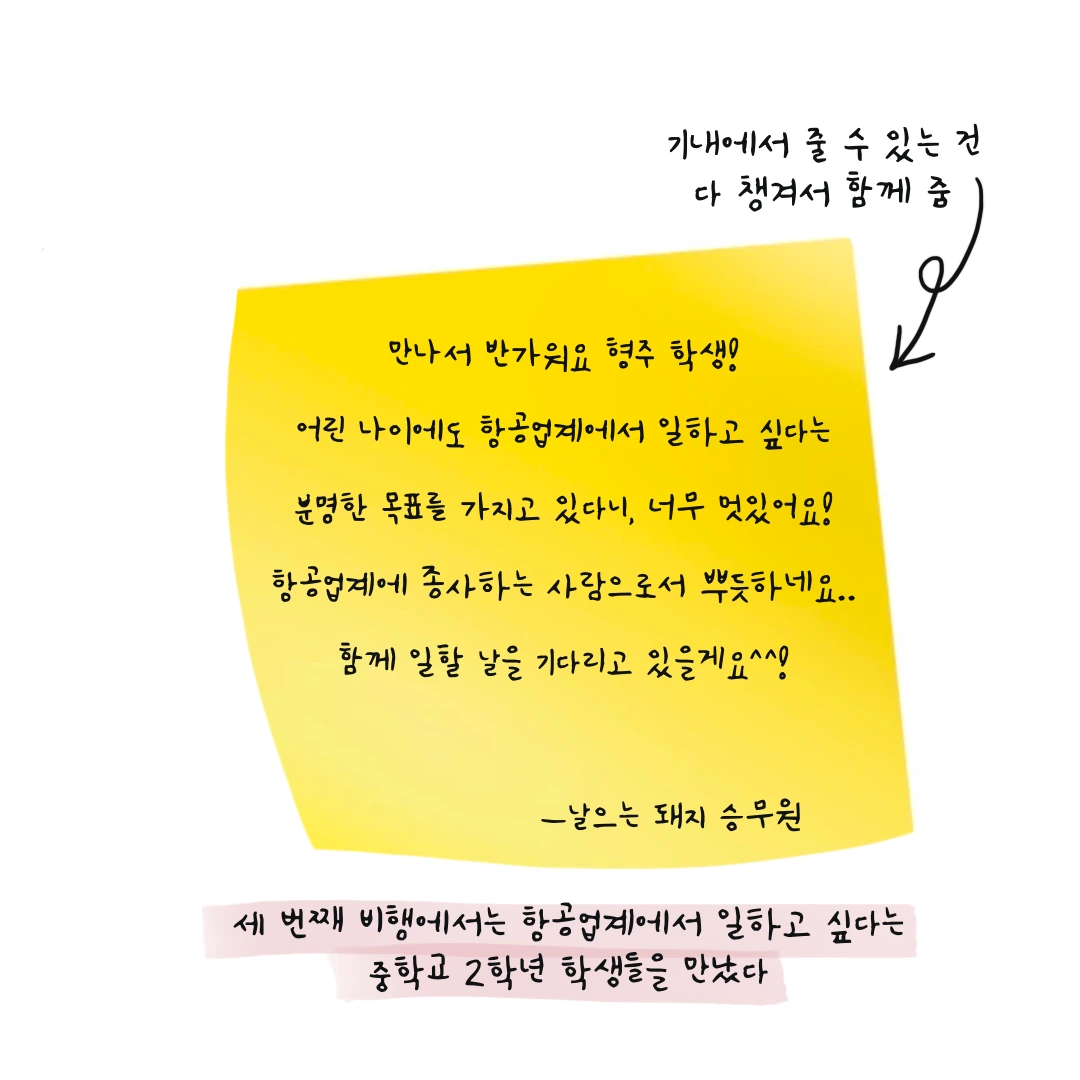 기내에서 줄 수 있는 건
다 챙겨서 함께 줌
만나서 반가워요 형주 학생!
어린 나이에도 항공업계에서 일하고 싶다는
분명한 목표를 가지고 있다니, 너무 멋있어요!
항공업계에 종사하는 사람으로서 뿌듯하네요..
함께 일할 날을 기다리고 있을게요^^!
—날으는 돼지 승무원
세 번째 비행에서는 항공업계에서 일하고 싶다는
중학교 2학년 학생들을 만났다